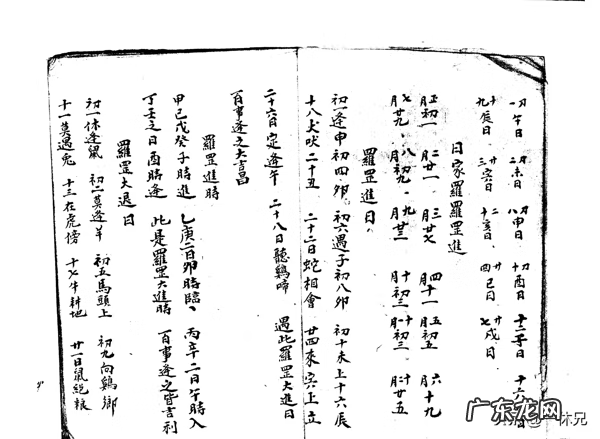 午日 二月未日 八月申日 十月酉日 十二子日 十六日
十九辰日 廿三亥日 十二亥日 廿四巳日 廿七戌日
日家羅羅罡進
正月初一 二月廿一 三月廿七 四月十一 五月初五 六月十九
七月廿九 八月初九 九月廿三 十月初三 十一月初三 十二月廿五
羅罡進日
初一逢申 初四卯 初六遇子初八卯 初十未上十六辰
十八犬吠二十丑 二十二日蛇相會 廿四來亥上立
二十六日定逢午 二十八日聽鷄啼 遇此羅罡大進日
百事逢之大吉昌
羅罡進時
甲己戊癸子時進 乙庚二日卯時臨 丙辛二日午時入
丁壬之日酉時逢 此是羅罡大進時 百事逢之皆言利
羅罡大退日
初一休逢鼠 初二莫逢羊 初五馬頭上 初九向鷄鄉
十一莫遇兔 十三在虎傍 十七牛耕地 廿一日鼠絕糧
广东龙网
休兄